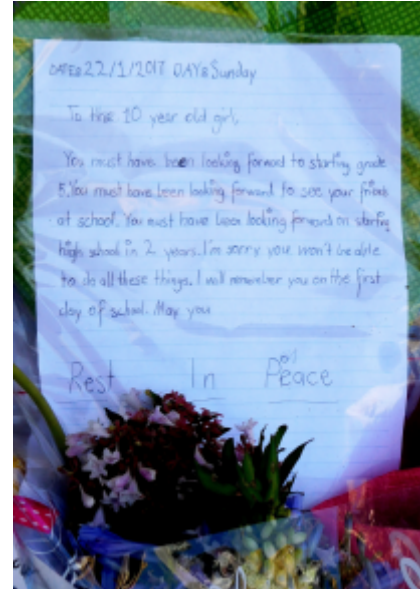 DATE: 22/1/2017 DAY: Sunday
To the 10 year old girl,
You must have been looking forward to starting grade
5. You must have been looking forward to see your friends
at school. You must have been looking forward on starting
high school in 2 years. I'm sorry you won't be able
to do all these things. I will remember you on the first
day of school. May you
Rest In Peace